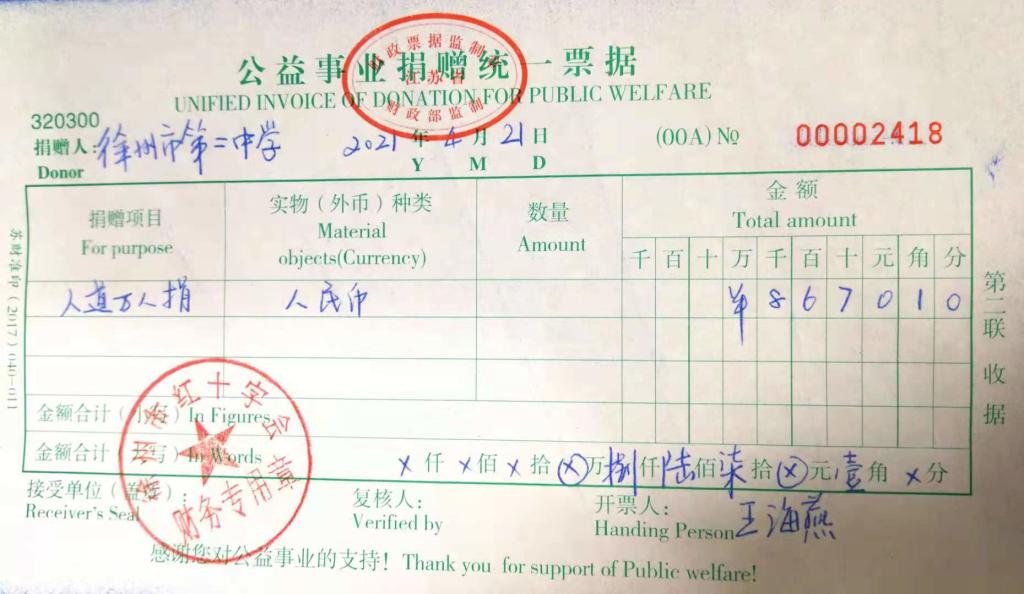 公益事业捐赠统一票据
财政票据监制章
江苏省
财政部监制
UNIFIED INVOICE OF DONATION FOR PUBLIC WELFARE
320300
捐赠人: 徐州市第二中学 2021 年 4 月 21 日 (00A) № 00002418
Donor Y M D
捐赠项目 实物（外币）种类 数量 金额
For purpose Material objects(Currency) Amount Total amount
千 百 十 万 千 百 十 元 角 分
人道万人捐 人民币 羊 8 6 7 0 1 0
金额合计（小写）In Figures
金额合计（大写）In Words × 仟 × 佰 × 拾 ⊗ 万 捌 仟 陆 佰 柒 拾 ⊗ 元 壹 角 × 分
接受单位（盖章）: 复核人: 开票人: 王海燕
Receiver's Seal Verified by Handing Person
徐州市红十字会
财务专用章
感谢您对公益事业的支持！ Thank you for support of Public welfare!
苏财准印(2017)040-011
第二联 收据